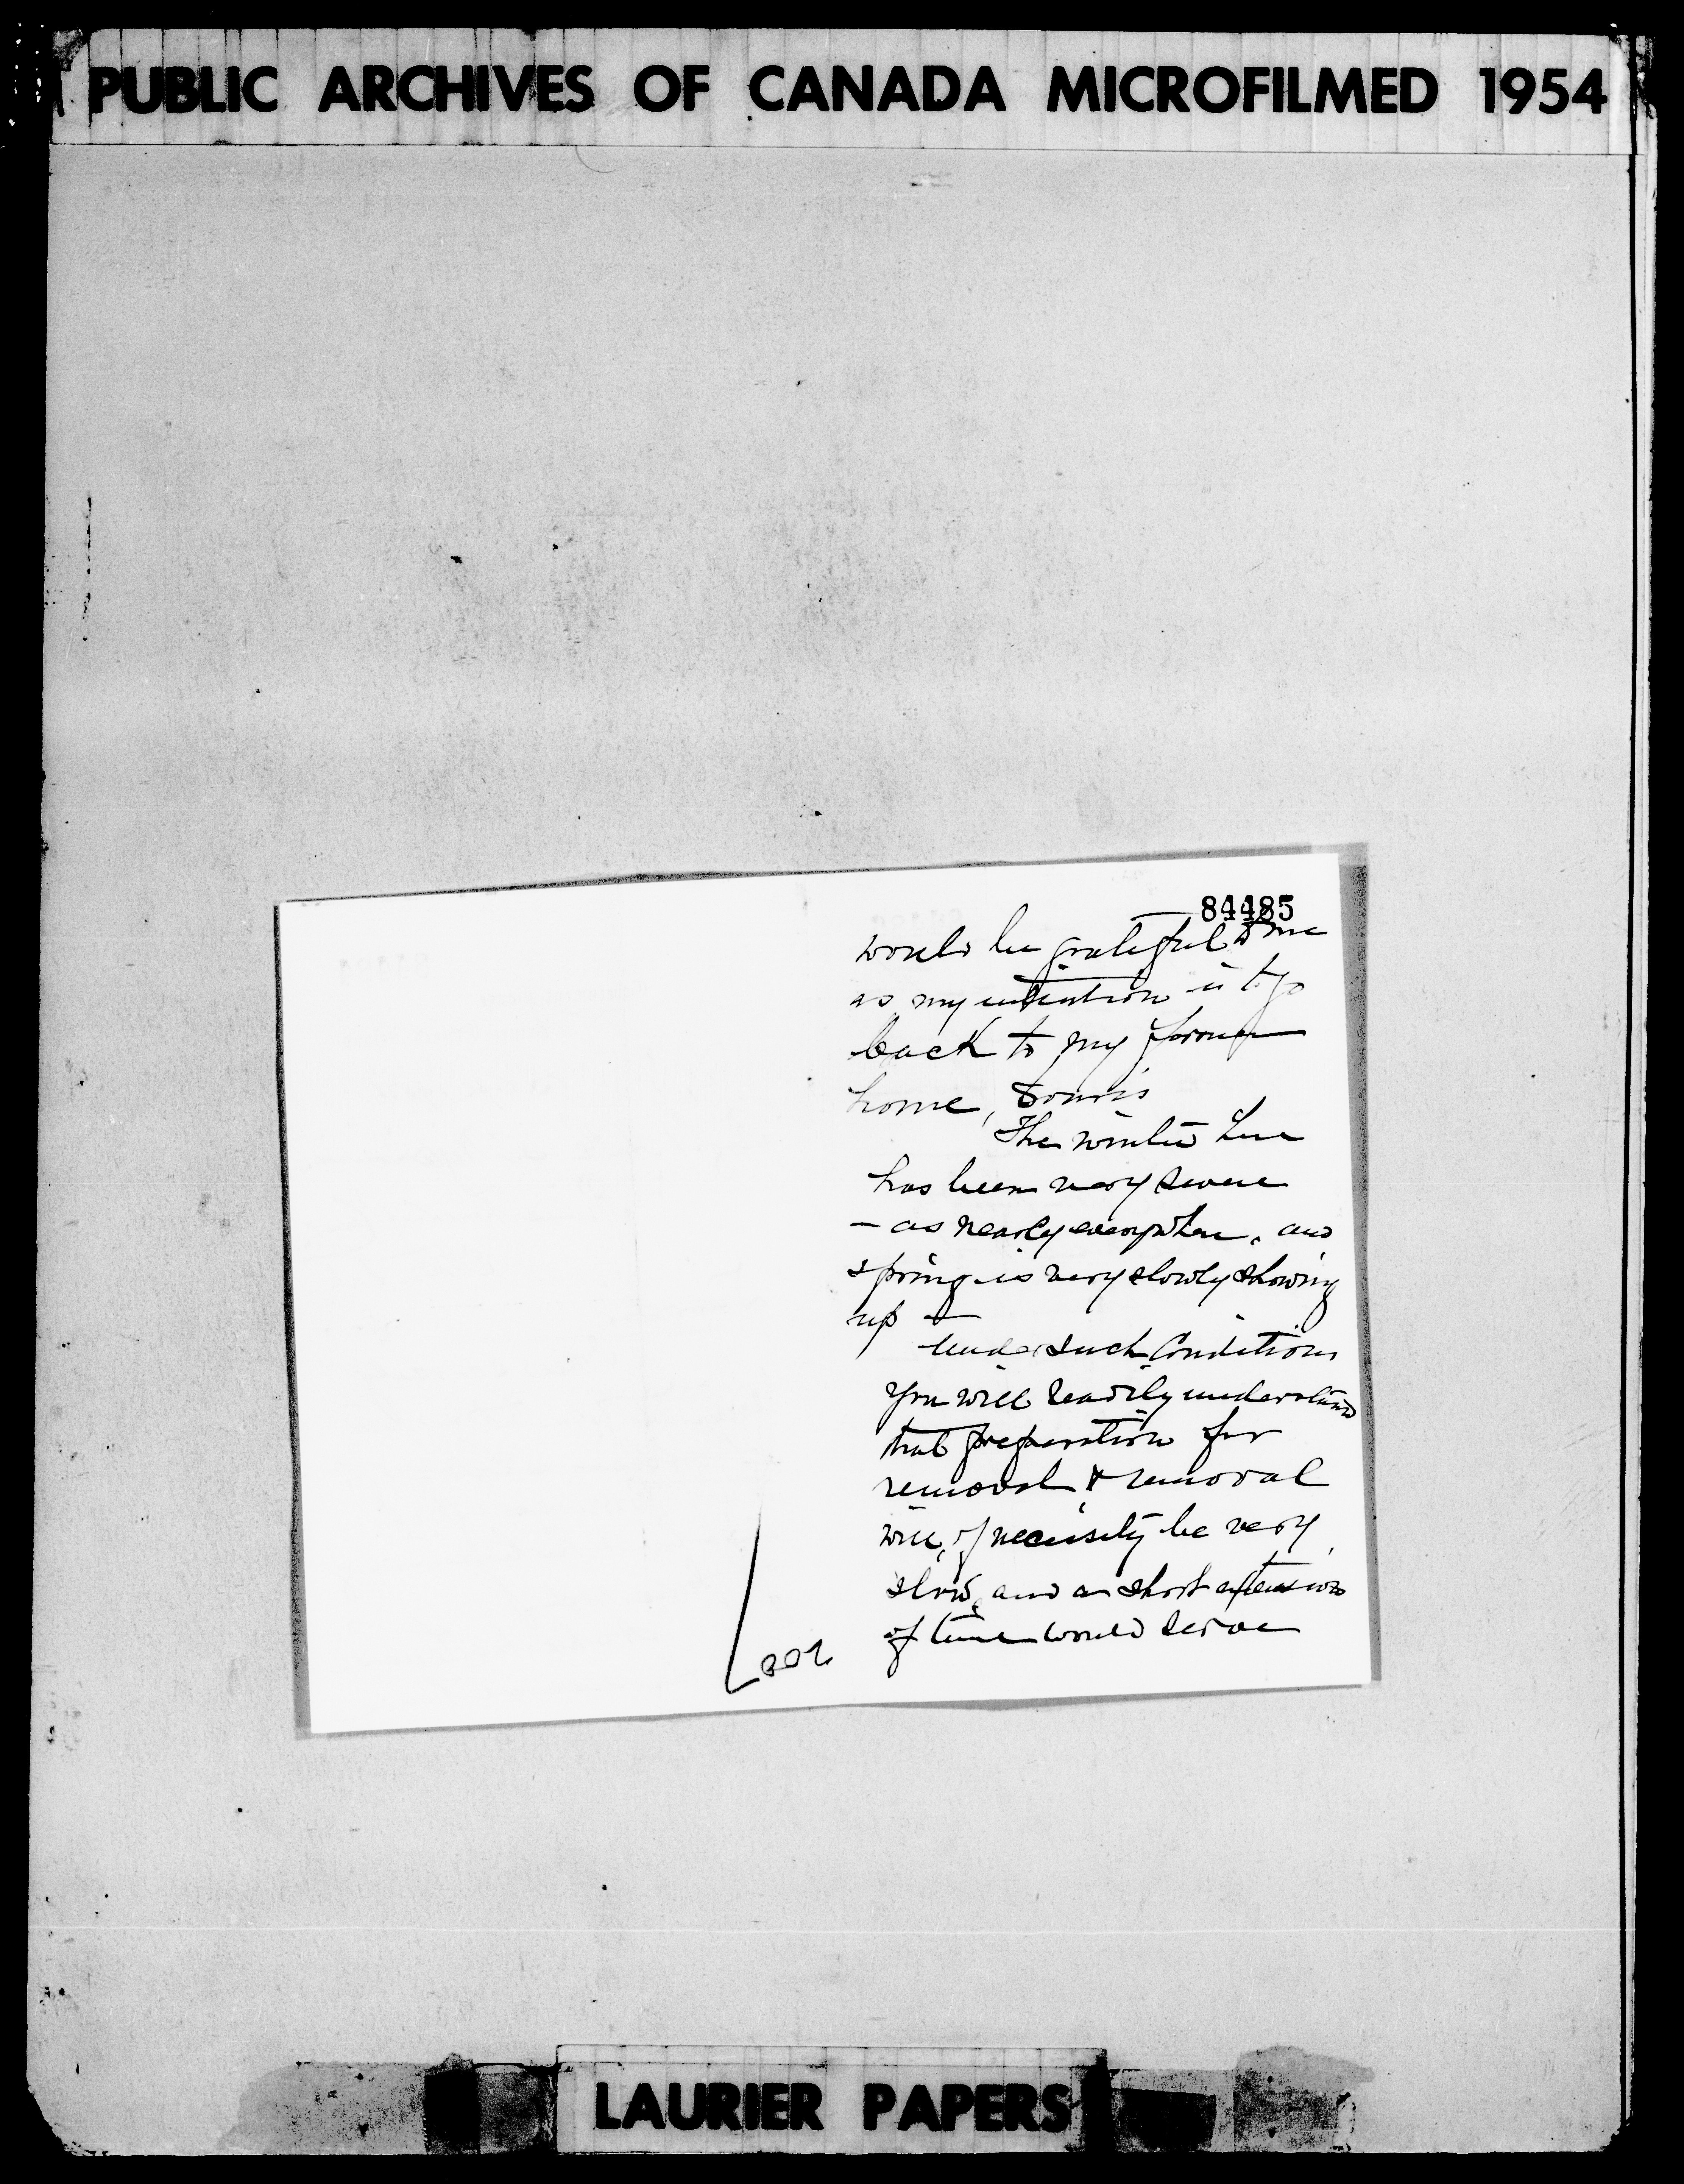 PUBLIC ARCHIVES OF CANADA MICROFILMED 1954
84485
would be grateful to me
as my intention is to go
back to my former
home, Souris
The winter here
has been very severe
– as nearly everywhere, and
spring is very slowly showing
up –
Under such Conditions
you will readily understand
that preparation for
removal & removal
will, of necessity be very
slow, and a short extension
of time would serve
LAURIER PAPERS